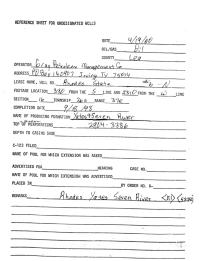 REFERENCE SHEET FOR UNDESIGNATED WELLS
DATE 4/19/60
OIL/GAS Oil
COUNTY Lea
OPERATOR Gray Petroleum Management Co
ADDRESS PO Box 140907 Irving TX 75014
LEASE NAME, WELL NO. Rhodes State #6 - N
FOOTAGE LOCATION 330 FROM THE S LINE AND 2310 FROM THE W LINE
SECTION 16 TOWNSHIP 26S RANGE 37E
COMPLETION DATE
NAME OF PRODUCING FORMATION Yates & Seven River
TOP OF PERFORATIONS
DEPTH TO CASING SHOE
C-123 FILED
NAME OF POOL FOR WHICH EXTENSION WAS ASKED
ADVERTISED FOR HEARING CASE NO.
NAME OF POOL FOR WHICH EXTENSION WAS ADVERTISED
PLACED IN BY ORDER NO. R-
REMARKS Rhodes Yates Seven River